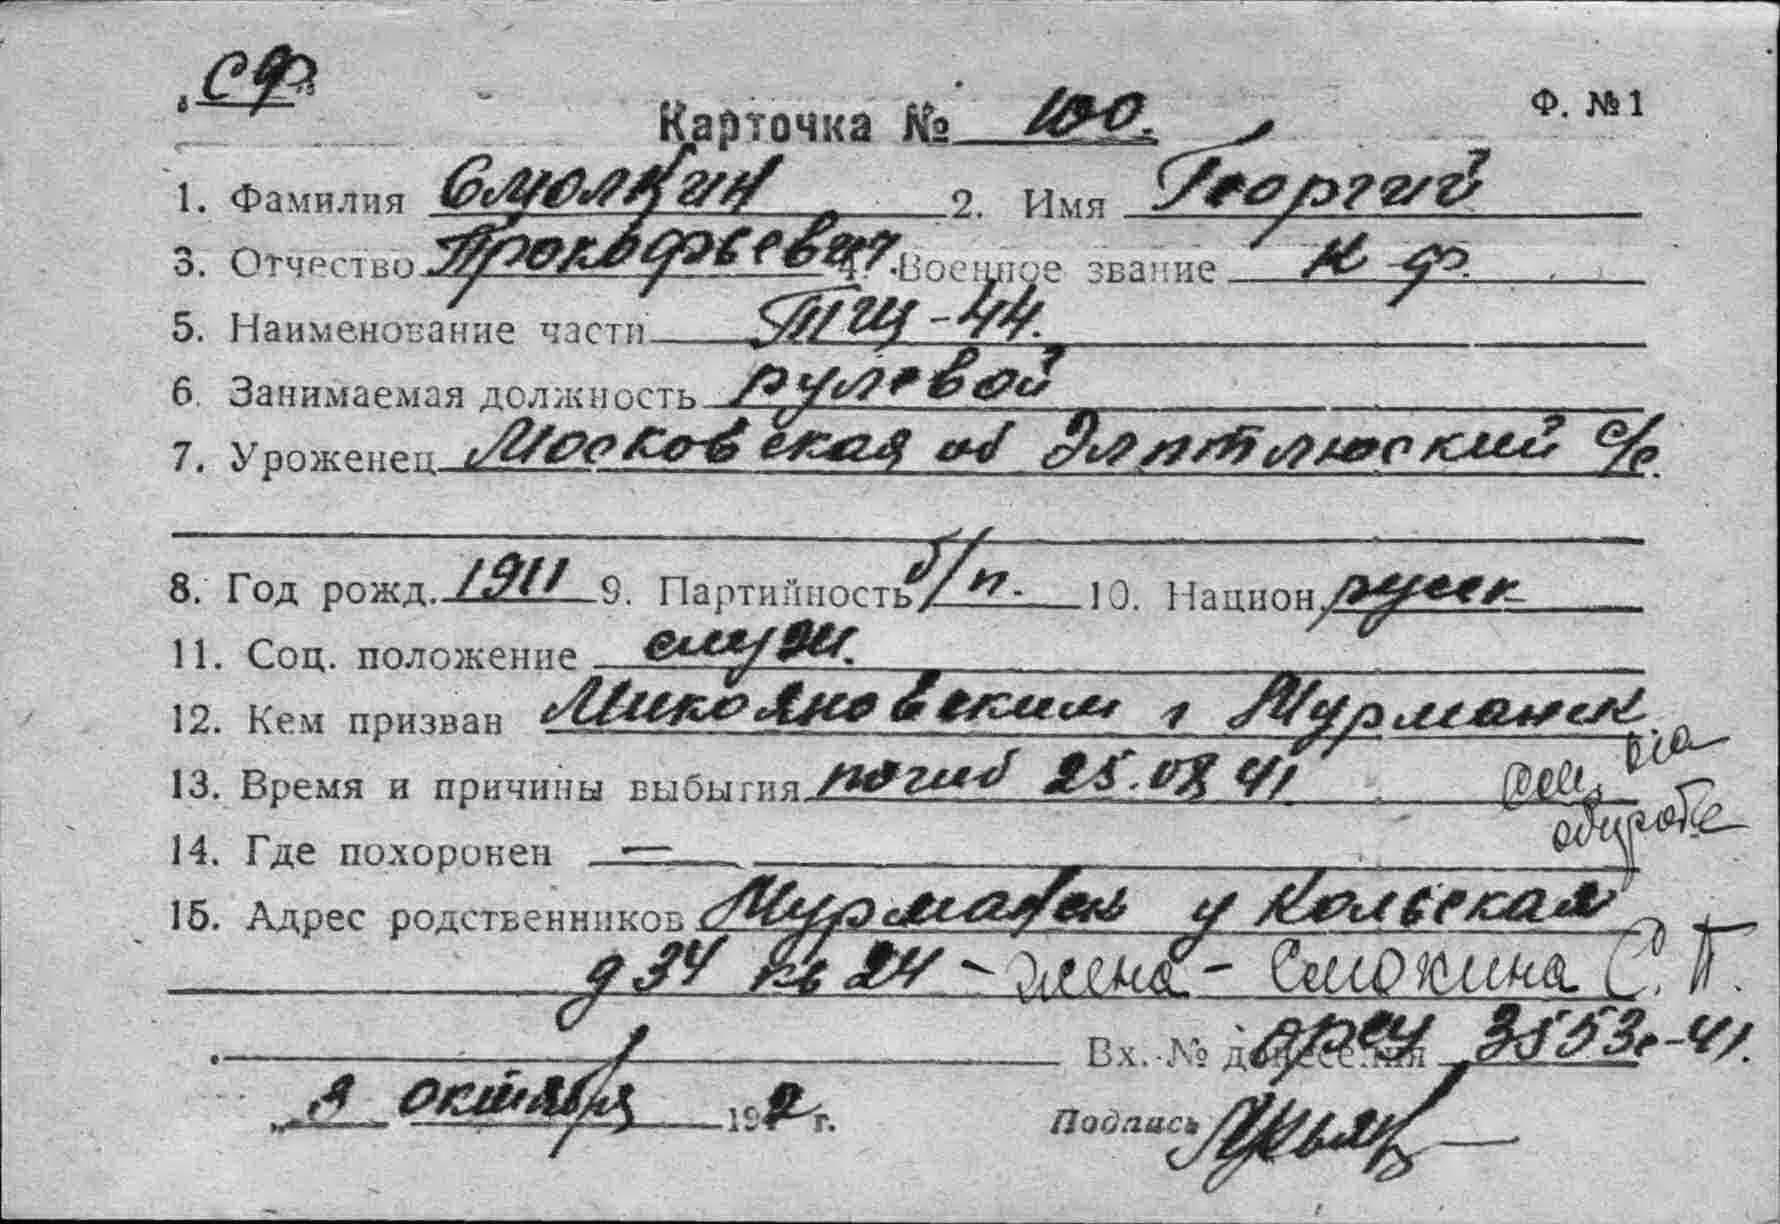 „СФ"
Карточка № 100.
Ф. №1
1. Фамилия Смолкин 2. Имя Георгий
3. Отчество Прокофьевич 4. Военное звание к ф.
5. Наименование части ТЩ-44.
6. Занимаемая должность рулевой
7. Уроженец Московская об Элптлюский с/с.
8. Год рожд. 1911 9. Партийность б/п. 10. Национ. русск
11. Соц. положение служ.
12. Кем призван Микояновским г Мурманск
13. Время и причины выбытия погиб 25.08 41
14. Где похоронен —
15. Адрес родственников Мурманск у Кольская
д 34 кв 24 - жена - Смокина С. П.
Вх. № донесения 3553с-41.
октября 19 г.
Подпись